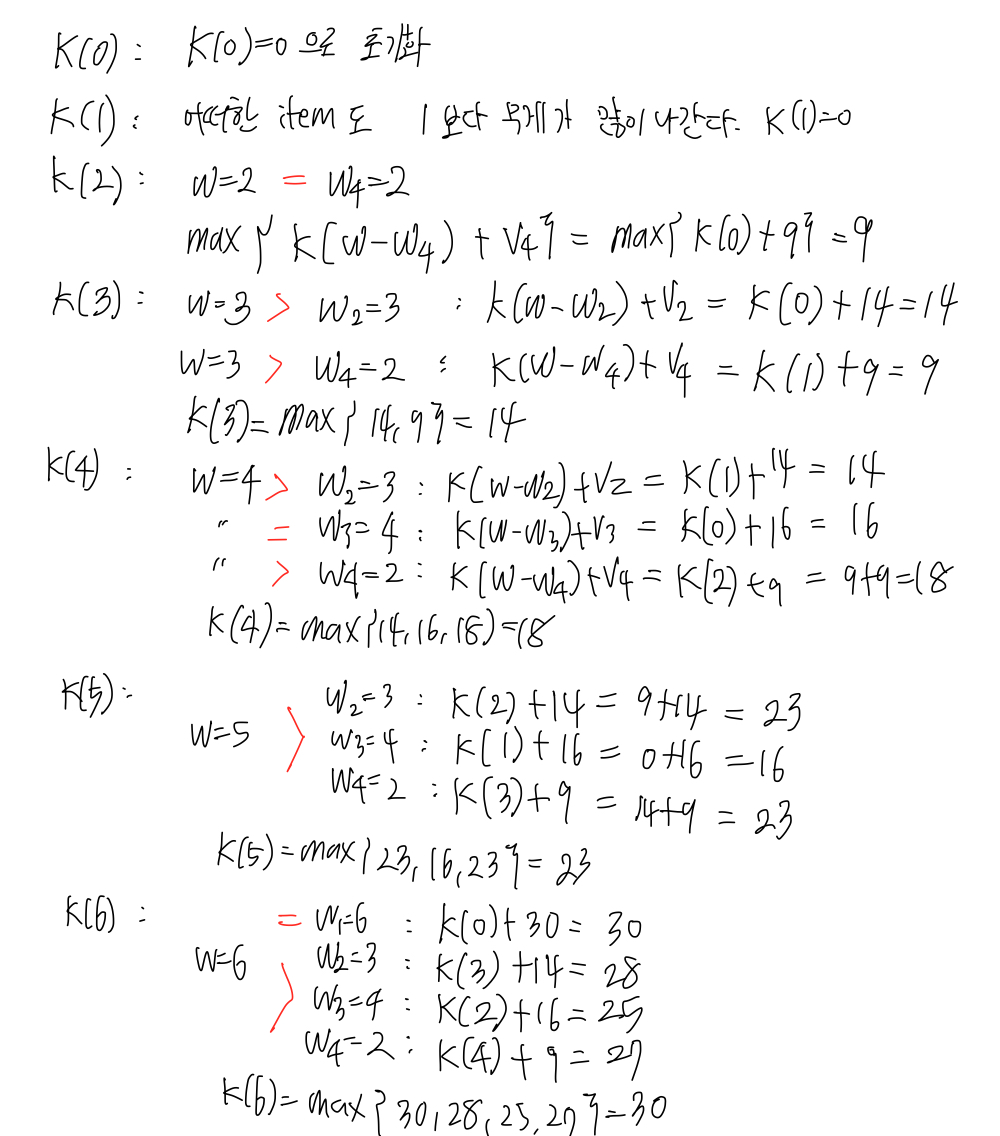 K(0) : K(0)=0 으로 초기화
K(1) : 어떠한 item 도 1 보다 무게가 많이 나간다. K(1)=0
K(2) : W=2 = W₄=2
max{ K(W-W₄) + V₄} = max{ K(0)+9} = 9
K(3) : W=3 > W₂=3 : K(W-W₂)+V₂ = K(0)+14=14
W=3 > W₄=2 : K(W-W₄)+V₄ = K(1)+9=9
K(3)=max{14,9}=14
K(4) : W=4 > W₂=3 : K(W-W₂)+V₂ = K(1)+14 = 14
〃 = W₃=4 : K(W-W₃)+V₃ = K(0)+16 = 16
〃 > W₄=2 : K(W-W₄)+V₄ = K(2)+9 = 9+9=18
K(4)=max{14,16,18)=18
K(5) :
W₂=3 : K(2)+14 = 9+14 = 23
W=5 > W₃=4 : K(1)+16 = 0+16 =16
W₄=2 : K(3)+9 = 14+9 = 23
K(5)=max{23,16,23}= 23
K(6) : = W₁=6 : K(0)+30= 30
W=6 > W₂=3 : K(3)+14= 28
W₃=4 : K(2)+16=25
W₄=2 : K(4)+9=27
K(6)=max{30,28,25,27}=30